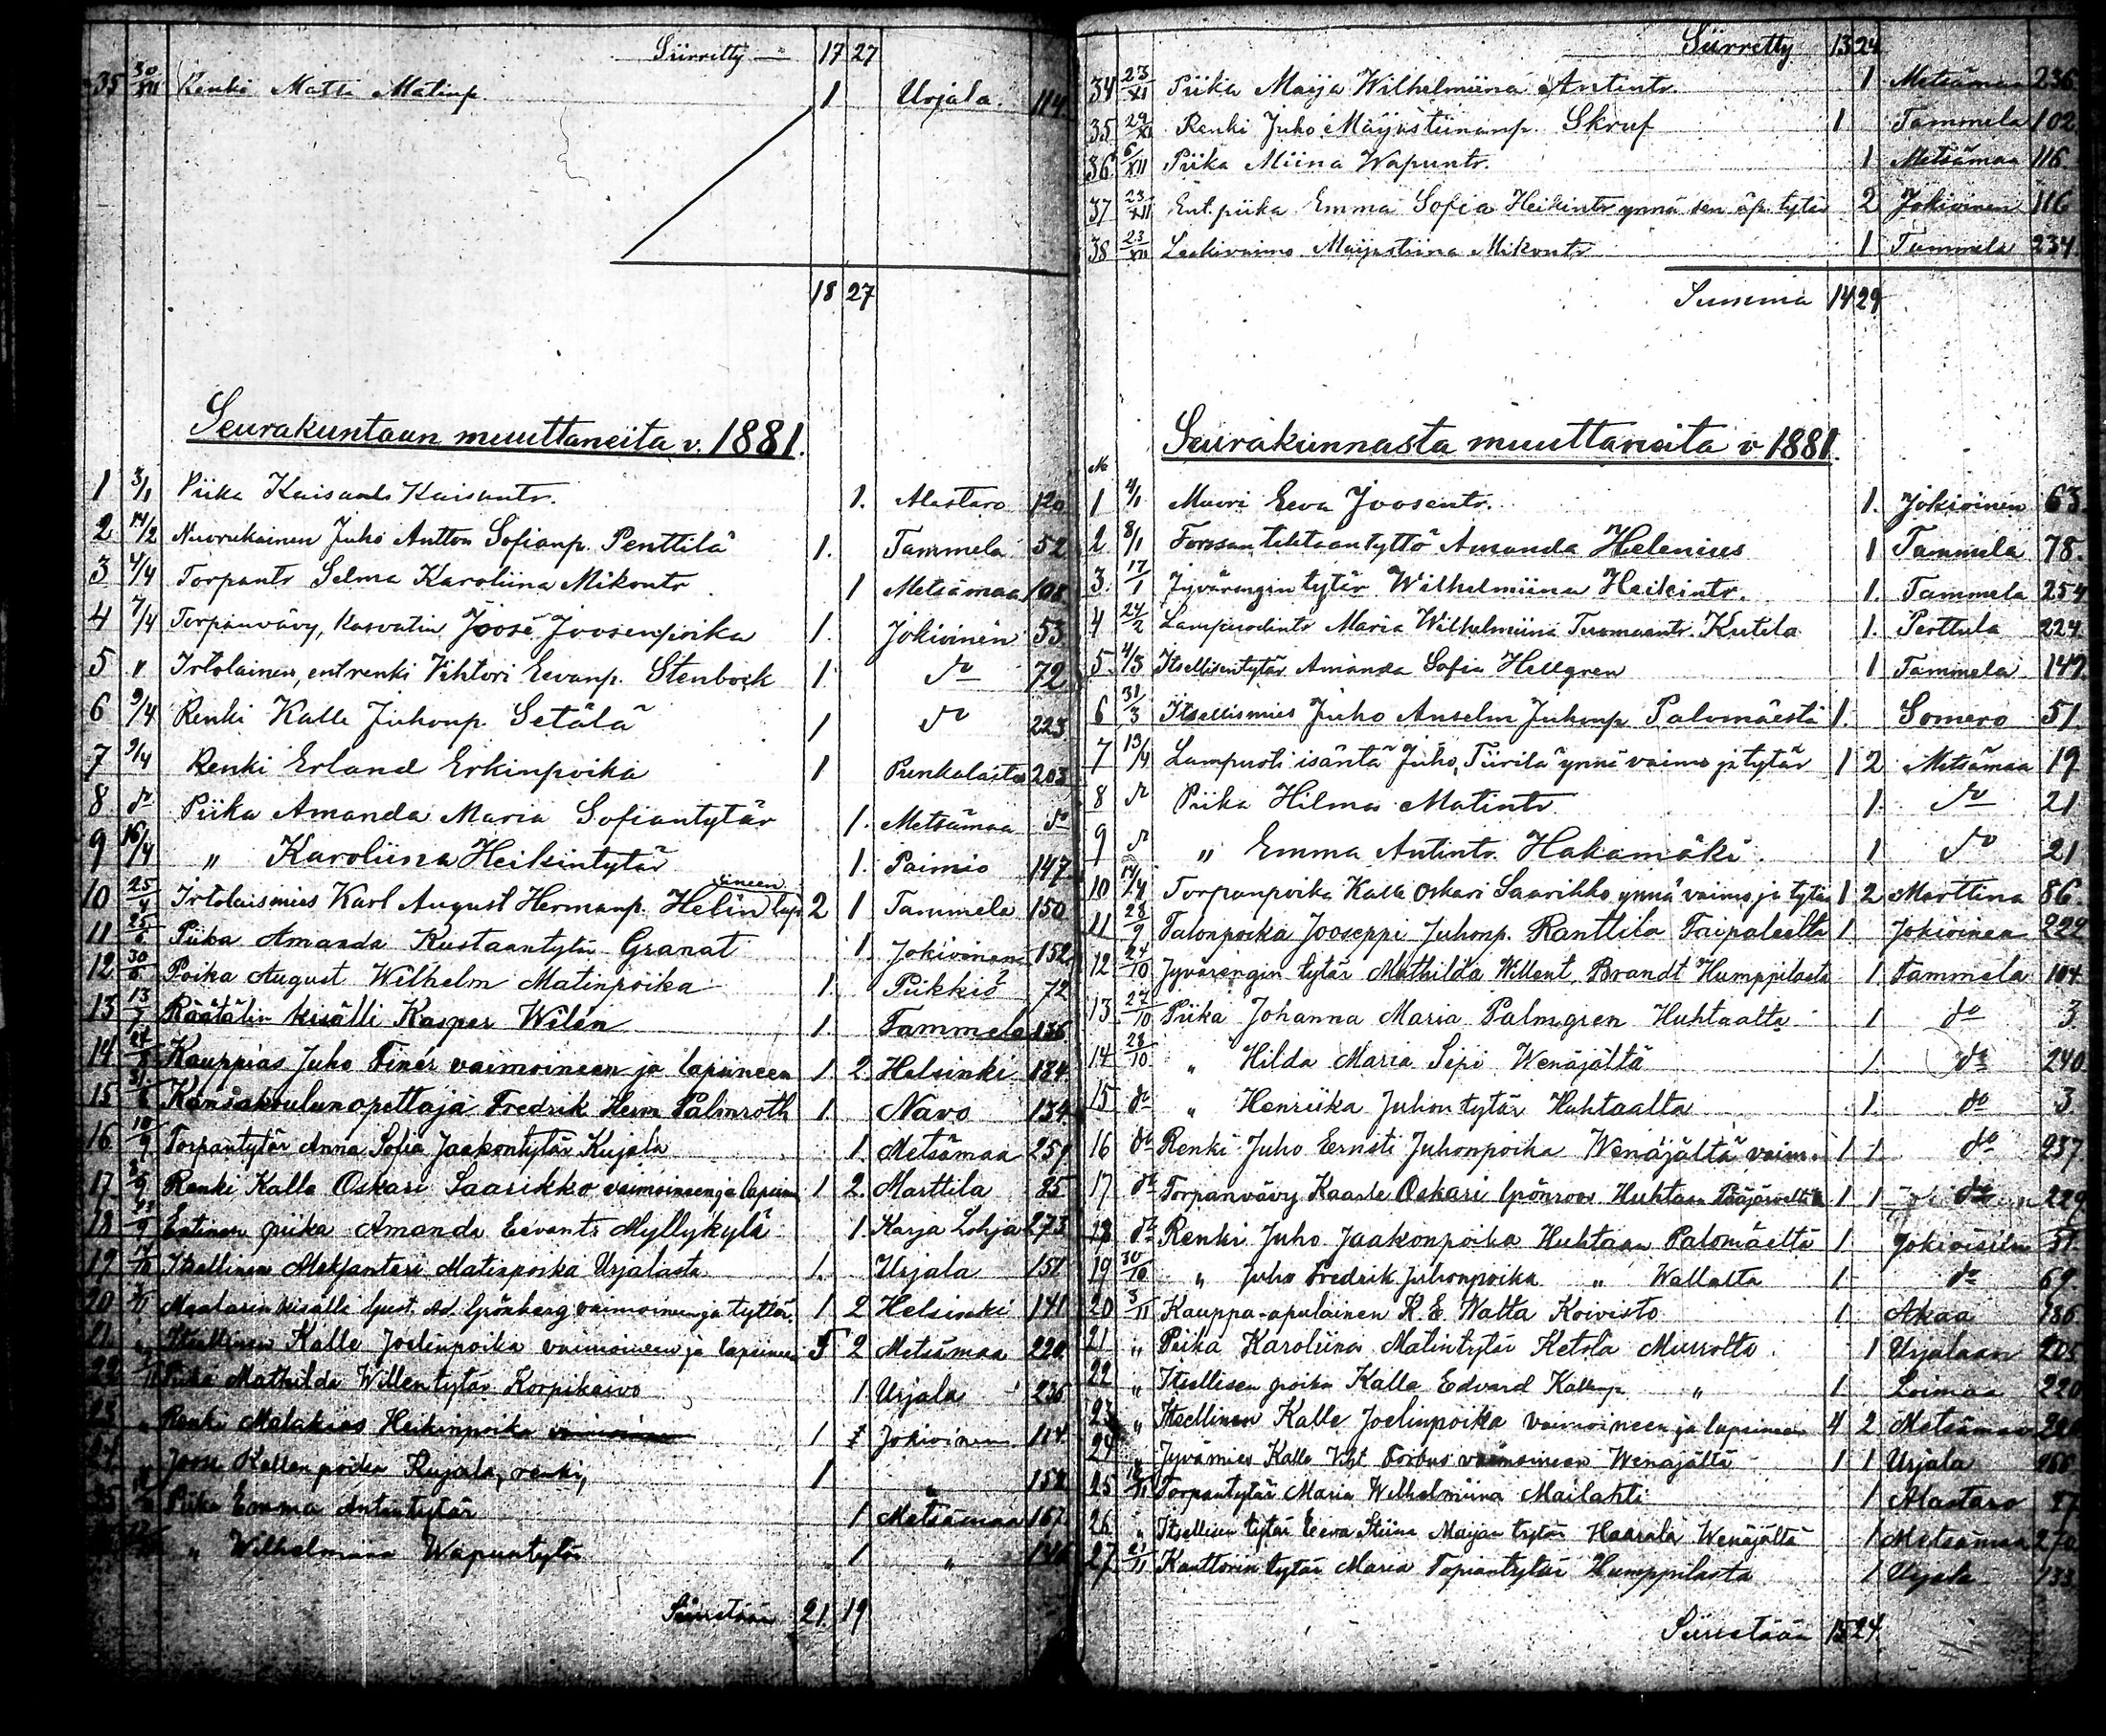 Siirretty 17 27
35 30/XII Renki Matti Matinp. 1 Urjala. 114
18 27
Seurakuntaan muuttaneita v. 1881.
1 3/1 Piika Kaisa Kaisantr. 1. Alastaro 120
2 14/2 Nuorukainen Juho Antton Sofianp. Penttilä 1. Tammela 52
3 4/4 Torpantr Selma Karoliina Mikontr 1 Metsämaa 108
4 7/4 Torpanvävy, kasvatin Joose Joosenpoika 1. Jokioinen 53
5 " Irtolainen, entrenki Vihtori Eevanp. Stenbock 1. do 72
6 9/4 Renki Kalle Juhonp. Setälä 1 do 223
7 9/4 Renki Erland Erkinpoika 1 Punkalaitu 203
8 do Piika Amanda Maria Sofiantytär 1. Metsämaa do
9 16/4 " Karoliina Heikintytär 1. Paimio 147
10 25/4 Irtolaismies Karl August Hermanp. Helin lapsineen 2 1 Tammela 150
11 25/6 Piika Amanda Kustaantytär Granat 1. Jokioinen 152
12 30/6 Poika August Wilhelm Matinpoika 1. Piikkiö 72
13 13/7 Räätälin kisälli Kasper Wilén 1. Tammela 136
14 Kauppias Juho Finér vaimoineen ja lapsineen 1. 2. Helsinki 184
15 Kansakoulunopettaja Fredrik Herm Palmroth 1. Navo 134
16 10/9 Torpantytär Anna Sofia Jaakontytär Kujala 1. Metsämaa 259
17 Renki Kalle Oskari Saarikko vaimoineen ja lapsin 1 2. Marttila 85
18 Entinen piika Amanda Eevantr Myllykylä 1. Karja Lohja 273
19 Itsellinen Aleksanteri Matinpoika Urjalasta 1. Urjala 151
20 Maalarin kisälli Gust. Ad. Grönberg vaimoineen ja tyttär. 1 2 Helsinki 141
21 Itsellinen Kalle Joelinpoika vaimoineen ja lapsineen 5 2 Metsämaa 220
22 Piika Mathilda Willentytär Korpikaivo 1 Urjala 236
23 " Renki Malakias Heikinpoika 1 Jokioinen 114
24 Joose Kallenpoika Kujala, renki, 1 " 152
25 Piika Emma Antintytär 1 Metsämaa 167
" Wilhelmiina Wapuntytär 1 " 146
Siirretään 21. 19
Siirretty 13 24
34 23/XI Piika Maija Wilhelmiina Antintr. 1 Metsämaa 236
35 29/XI Renki Juho Maijastiinanp. Skruf 1 Tammela 102
36 6/XII Piika Miina Wapuntr. 1 Metsämaa 116
37 23/XII Ent. piika Emma Sofia Heikintr ynnä sen äp. tytär 2 Jokioinen 116
38 23/XII Leskivaimo Maijastiina Mikontr 1 Tammela 234
Summa 14 29
Seurakunnasta muuttaneita v 1881.
No
1 4/1 Muori Eeva Joosentr. 1. Jokioinen 63
2 8/1 Forssan tehtaantyttö Amanda Helenius 1 Tammela 78.
3. 17/1 Jyvärengin tytär Wilhelmiina Heikintr. 1. Tammela 254
4 24/2 Lampuodintr Maria Wilhelmiina Tuomaantr. Kutila 1. Perttula 224
5. 4/3 Itsellisentytär Amanda Sofia Hellgren 1 Tammela 147
6 31/3 Itsellismies Juho Anselm Juhonp Palomäestä 1. Somero 51
7 13/4 Lampuoti isäntä Juho Tiirilä ynnä vaimo ja tytär 1 2 Metsämaa 19
8 do Piika Hilma Matintr 1. do 21
9 do " Emma Antintr. Hakamäki. 1 do 21
10 14/4 Torpanpoika Kalle Oskari Saarikko ynnä vaimo ja tytär 1 2 Marttina 86.
11 28/9 Talonpoika Jooseppi Juhonp. Ranttila Taipaleelta 1 Jokioinen 222
12 24/10 Jyvärengin tytär Mathilda Willent. Brandt Humppilasta 1. Tammela 104
13 27/10 Piika Johanna Maria Palmgren Huhtaalta 1 do 3
14 28/10 " Hilda Maria Sipi Wenäjältä 1. do 240
15 do " Henriika Juhontytär Huhtaalta 1. do 3
16 do Renki Juho Ernsti Juhonpoika Wenäjältä vaim. 1 1 do 237
17 do Torpanvävy Kaarle Oskari Grönroos Huhtaan Pääjärveltä 1 1 do 229
18 do Renki Juho Jaakonpoika Huhtaan Palomäeltä 1 Jokioisiin 51
19 30/10 " Juho Fredrik Juhonpoika " Wallatta 1 do 69
20 3/11 Kauppa-apulainen K. E. Watta Koivisto 1. Akaa 186
21 " Piika Karoliina Matintytär Ketola Murrolta 1 Urjalaan 205
22 " Itsellisen poika Kalle Edvard Kallenp " 1 Loimaa 220
23 " Itsellinen Kalle Joelinpoika vaimoineen ja lapsineen 4 2 Metsämaa 220
24 Jyvämies Kalle Viht. Forbus vaimoineen Wenäjältä 1 1 Urjala 266
25 Torpantytär Maria Wilhelmiina Mailahti 1 Alastaro 87
26 " Itsellisen tytär Eeva Stiina Maijan tytär Haarala Wenäjältä 1 Metsämaa 270
27 21/11 Kanttorin tytär Maria Topiantytär Humppilasta 1 Urjala 133
Siirretään 15 24.